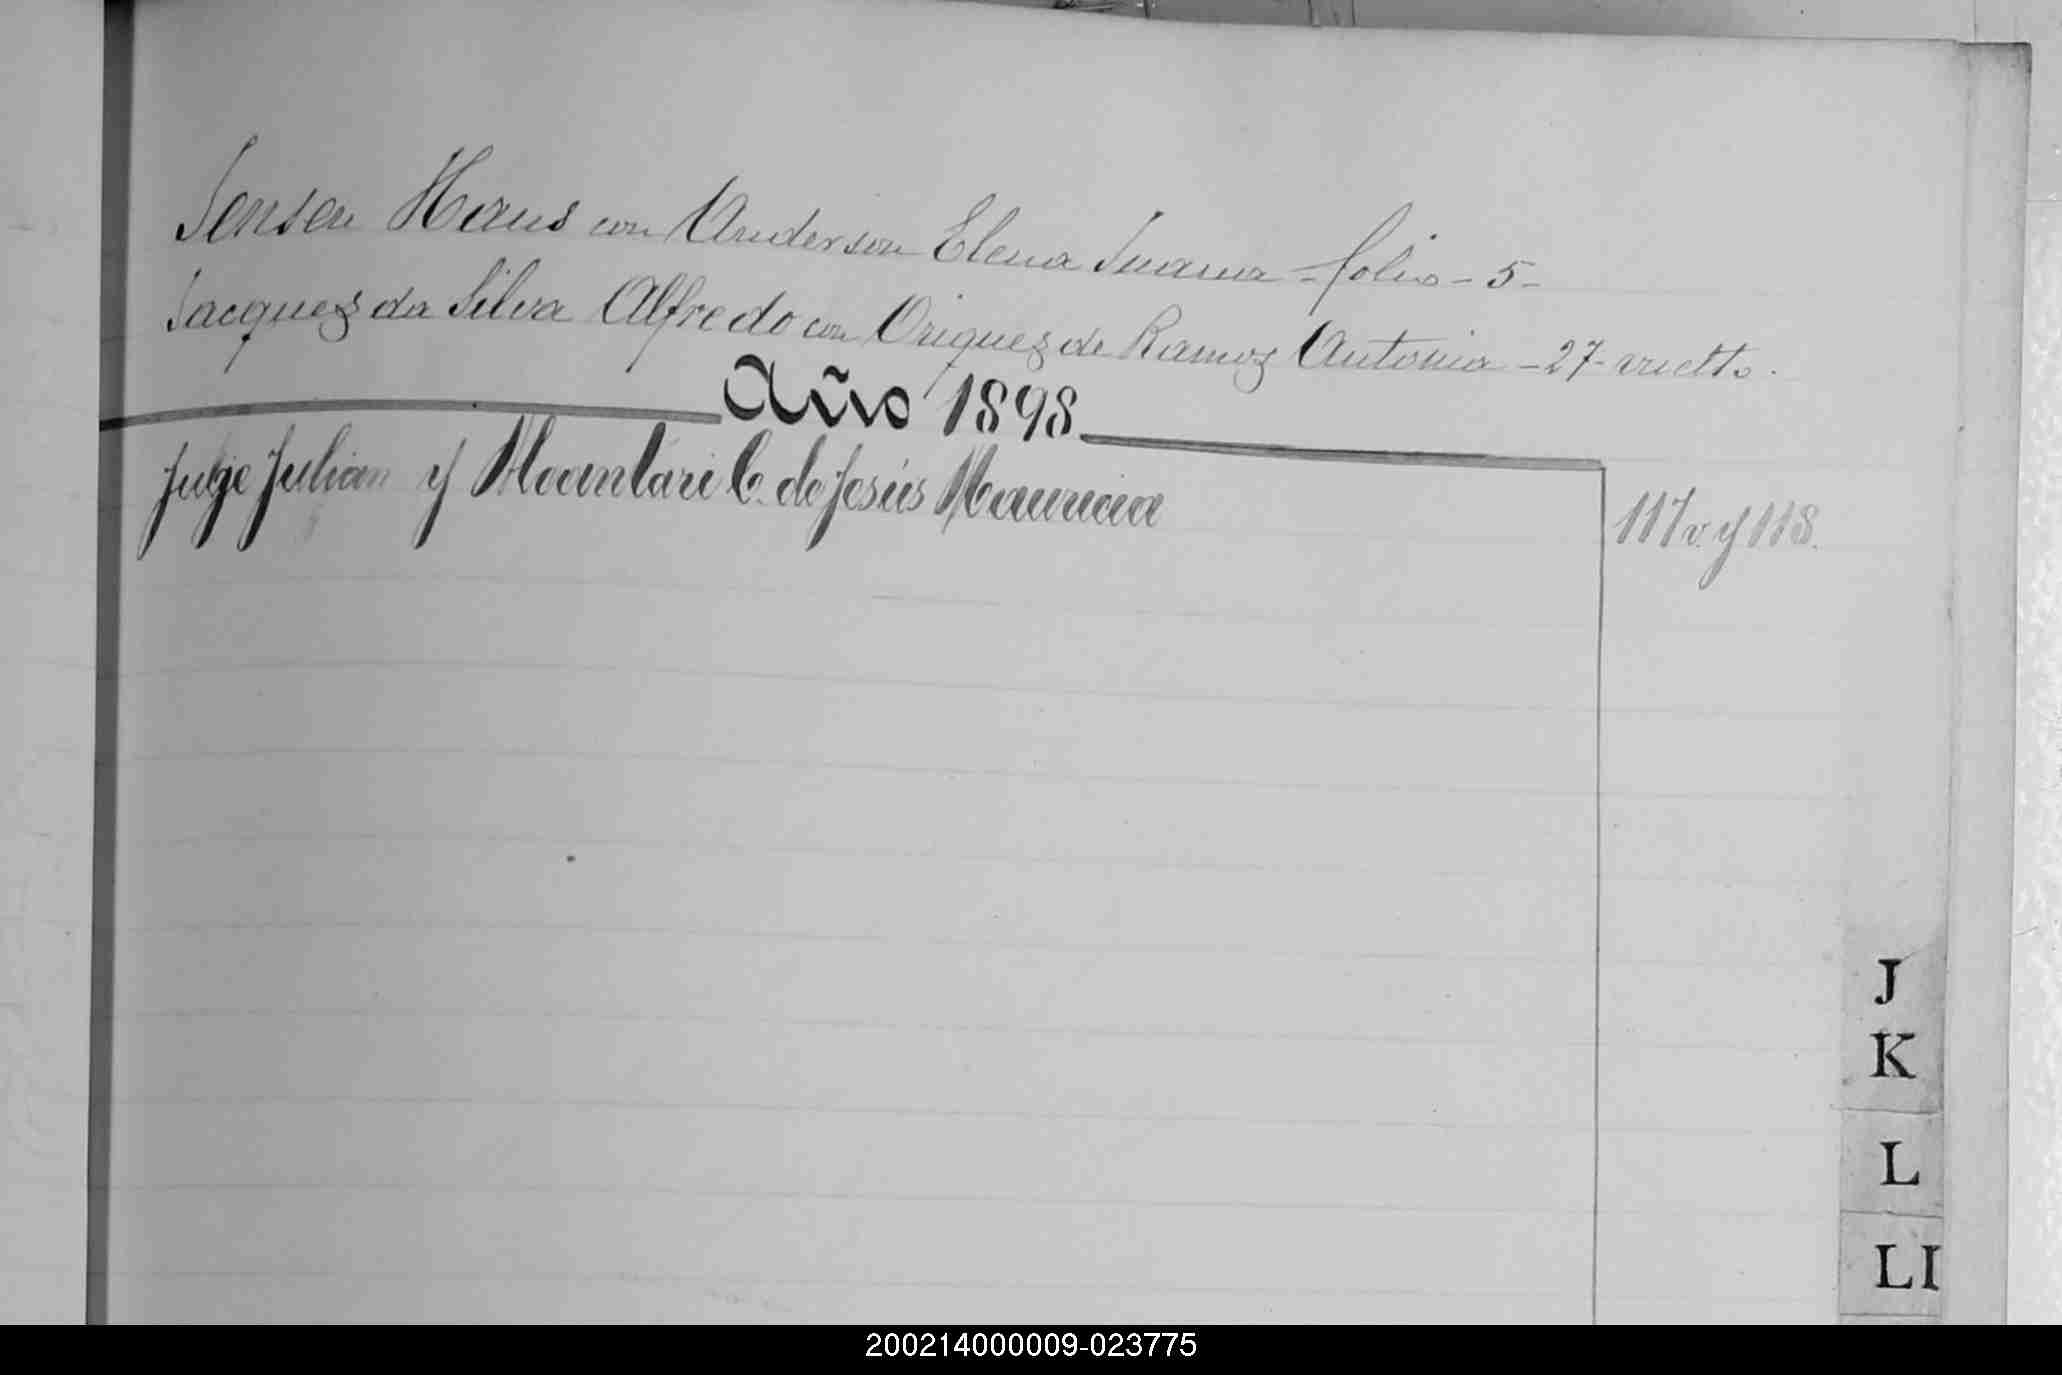 Jensen Hans con Anderson Elena Juana - folio - 5 -
Jacques da Silva Alfredo con Origues de Ramos Antonia - 27 - vuelto.
Año 1898
Julian y C. de Jesús Mauricia 117 v. y 118.
J
K
L
LI
200214000009-023775